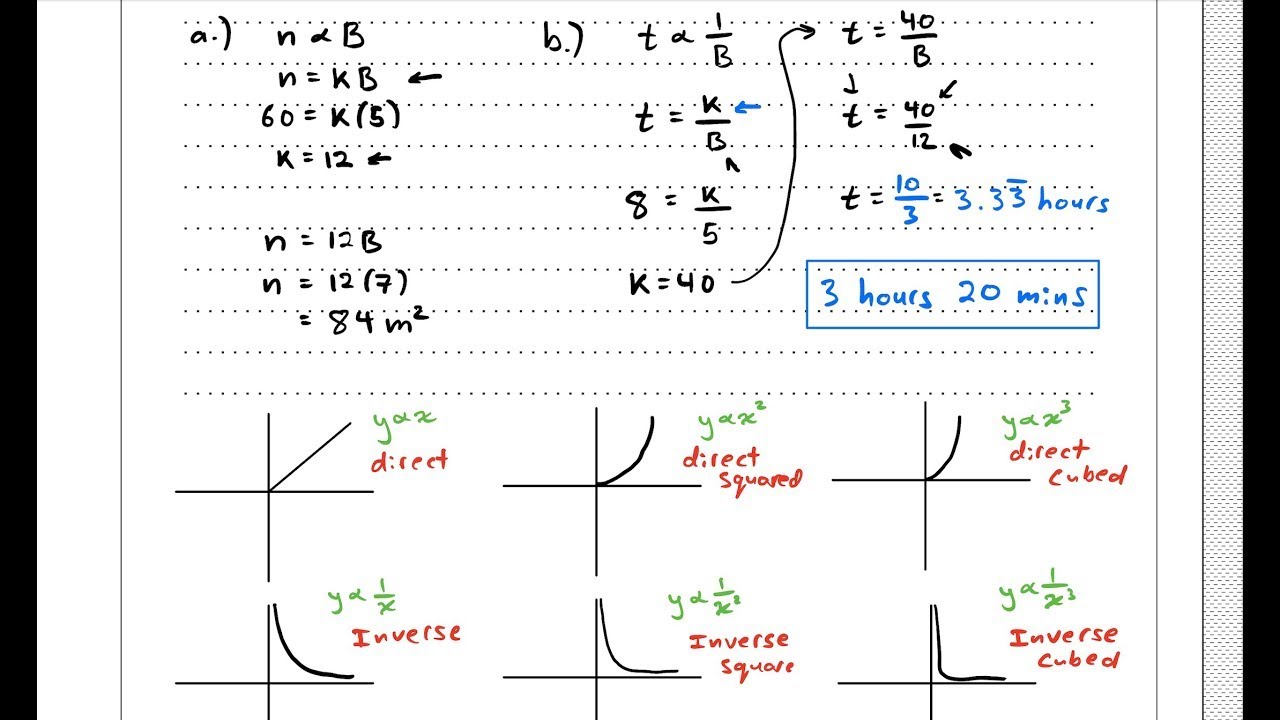 a.) n ∝ B
n = KB ←
60 = K(5)
K = 12 ←
n = 12B
n = 12(7)
= 84m²
b.) t ∝ 1/B
t = K/B ←
8 = K/5
K = 40
t = 40/B
t = 40/12
t = 10/3 = 3.33̅ hours
3 hours 20 mins
y ∝ x
direct
y ∝ x²
direct
squared
y ∝ x³
direct
cubed
y ∝ 1/x
Inverse
y ∝ 1/x²
Inverse
square
y ∝ 1/x³
Inverse
cubed